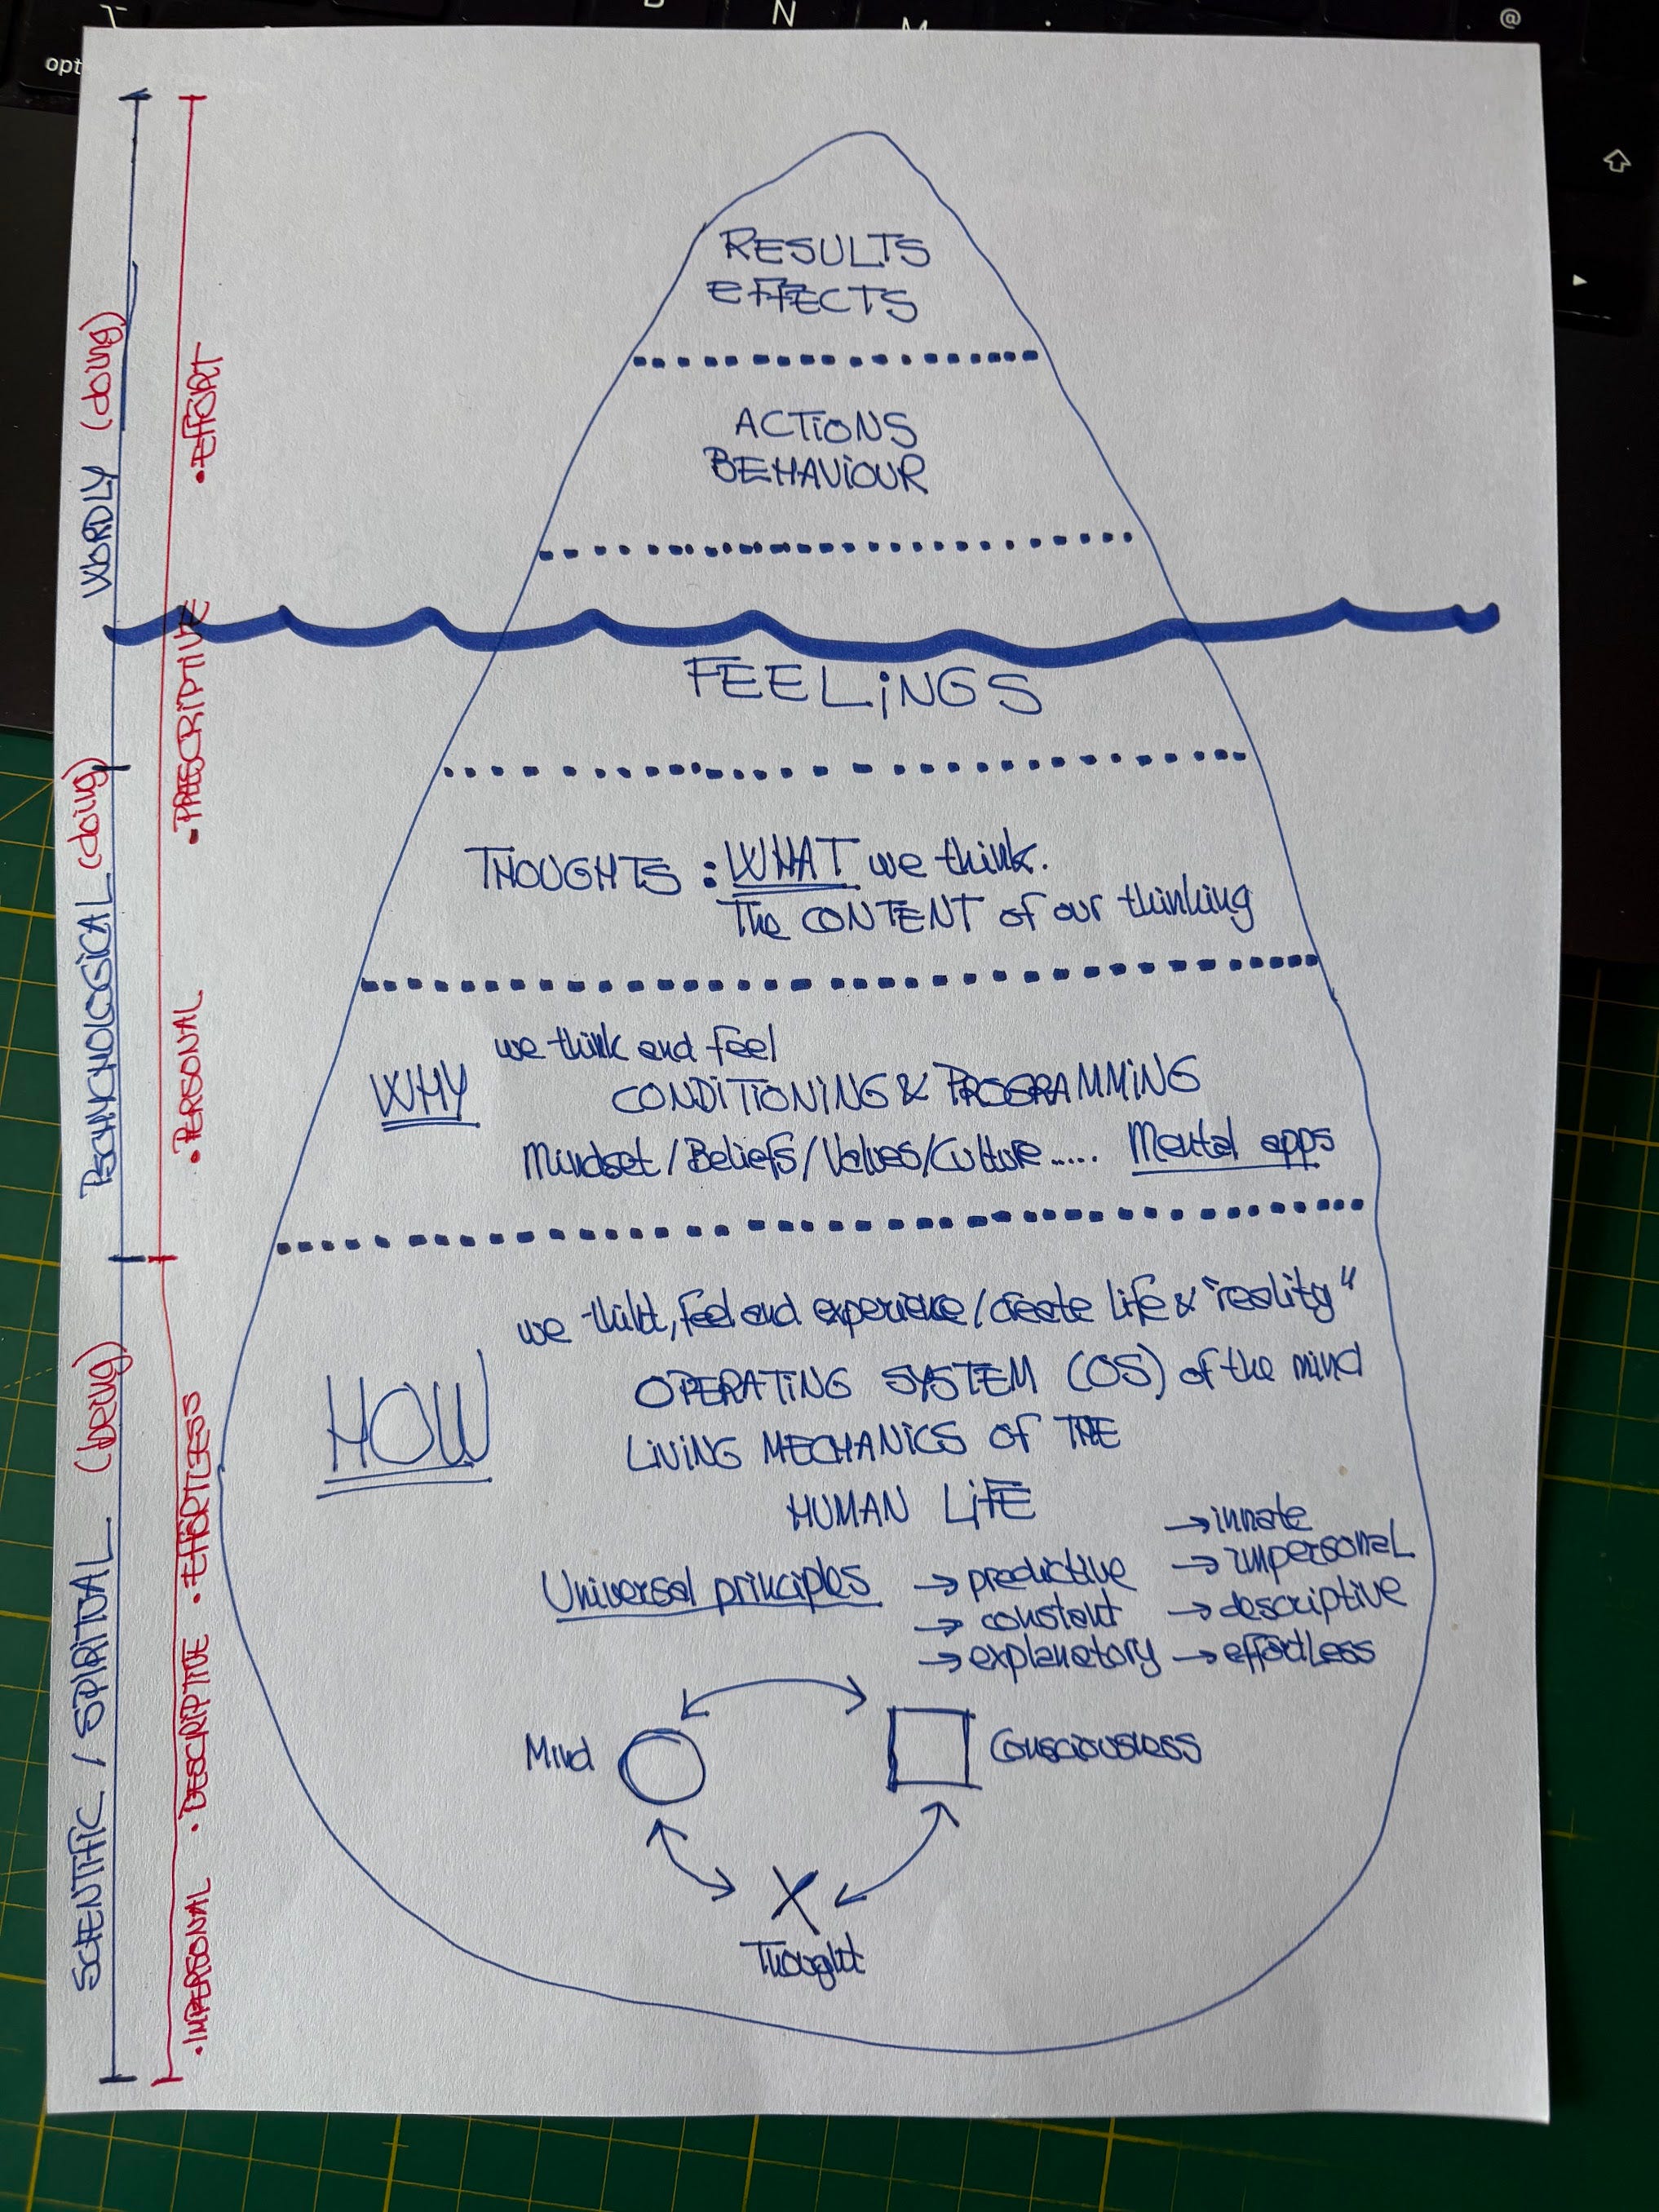 opt
N
M
@
RESULTS
EFFECTS
ACTIONS
BEHAVIOUR
FEELINGS
THOUGHTS : WHAT we think.
The CONTENT of our thinking
we think and feel
WHY
CONDITIONING & PROGRAMMING
Mindset / Beliefs / Values / Culture ..... Mental apps
we think, feel and experience / create life & "reality"
HOW
OPERATING SYSTEM (OS) of the mind
LIVING MECHANICS OF THE
HUMAN LIFE
Universal principles
→ predictive
→ constant
→ explanatory
→ innate
→ impersonal
→ descriptive
→ effortless
Mind
Consciousness
Thought
WORDLY (doing)
PSCHYCHOLOGICAL (doing)
SCIENTIFIC / SPIRITUAL (being)
• EFFORT
• PRESCRIPTIVE
• PERSONAL
• EFFORTLESS
• DESCRIPTIVE
• IMPERSONAL